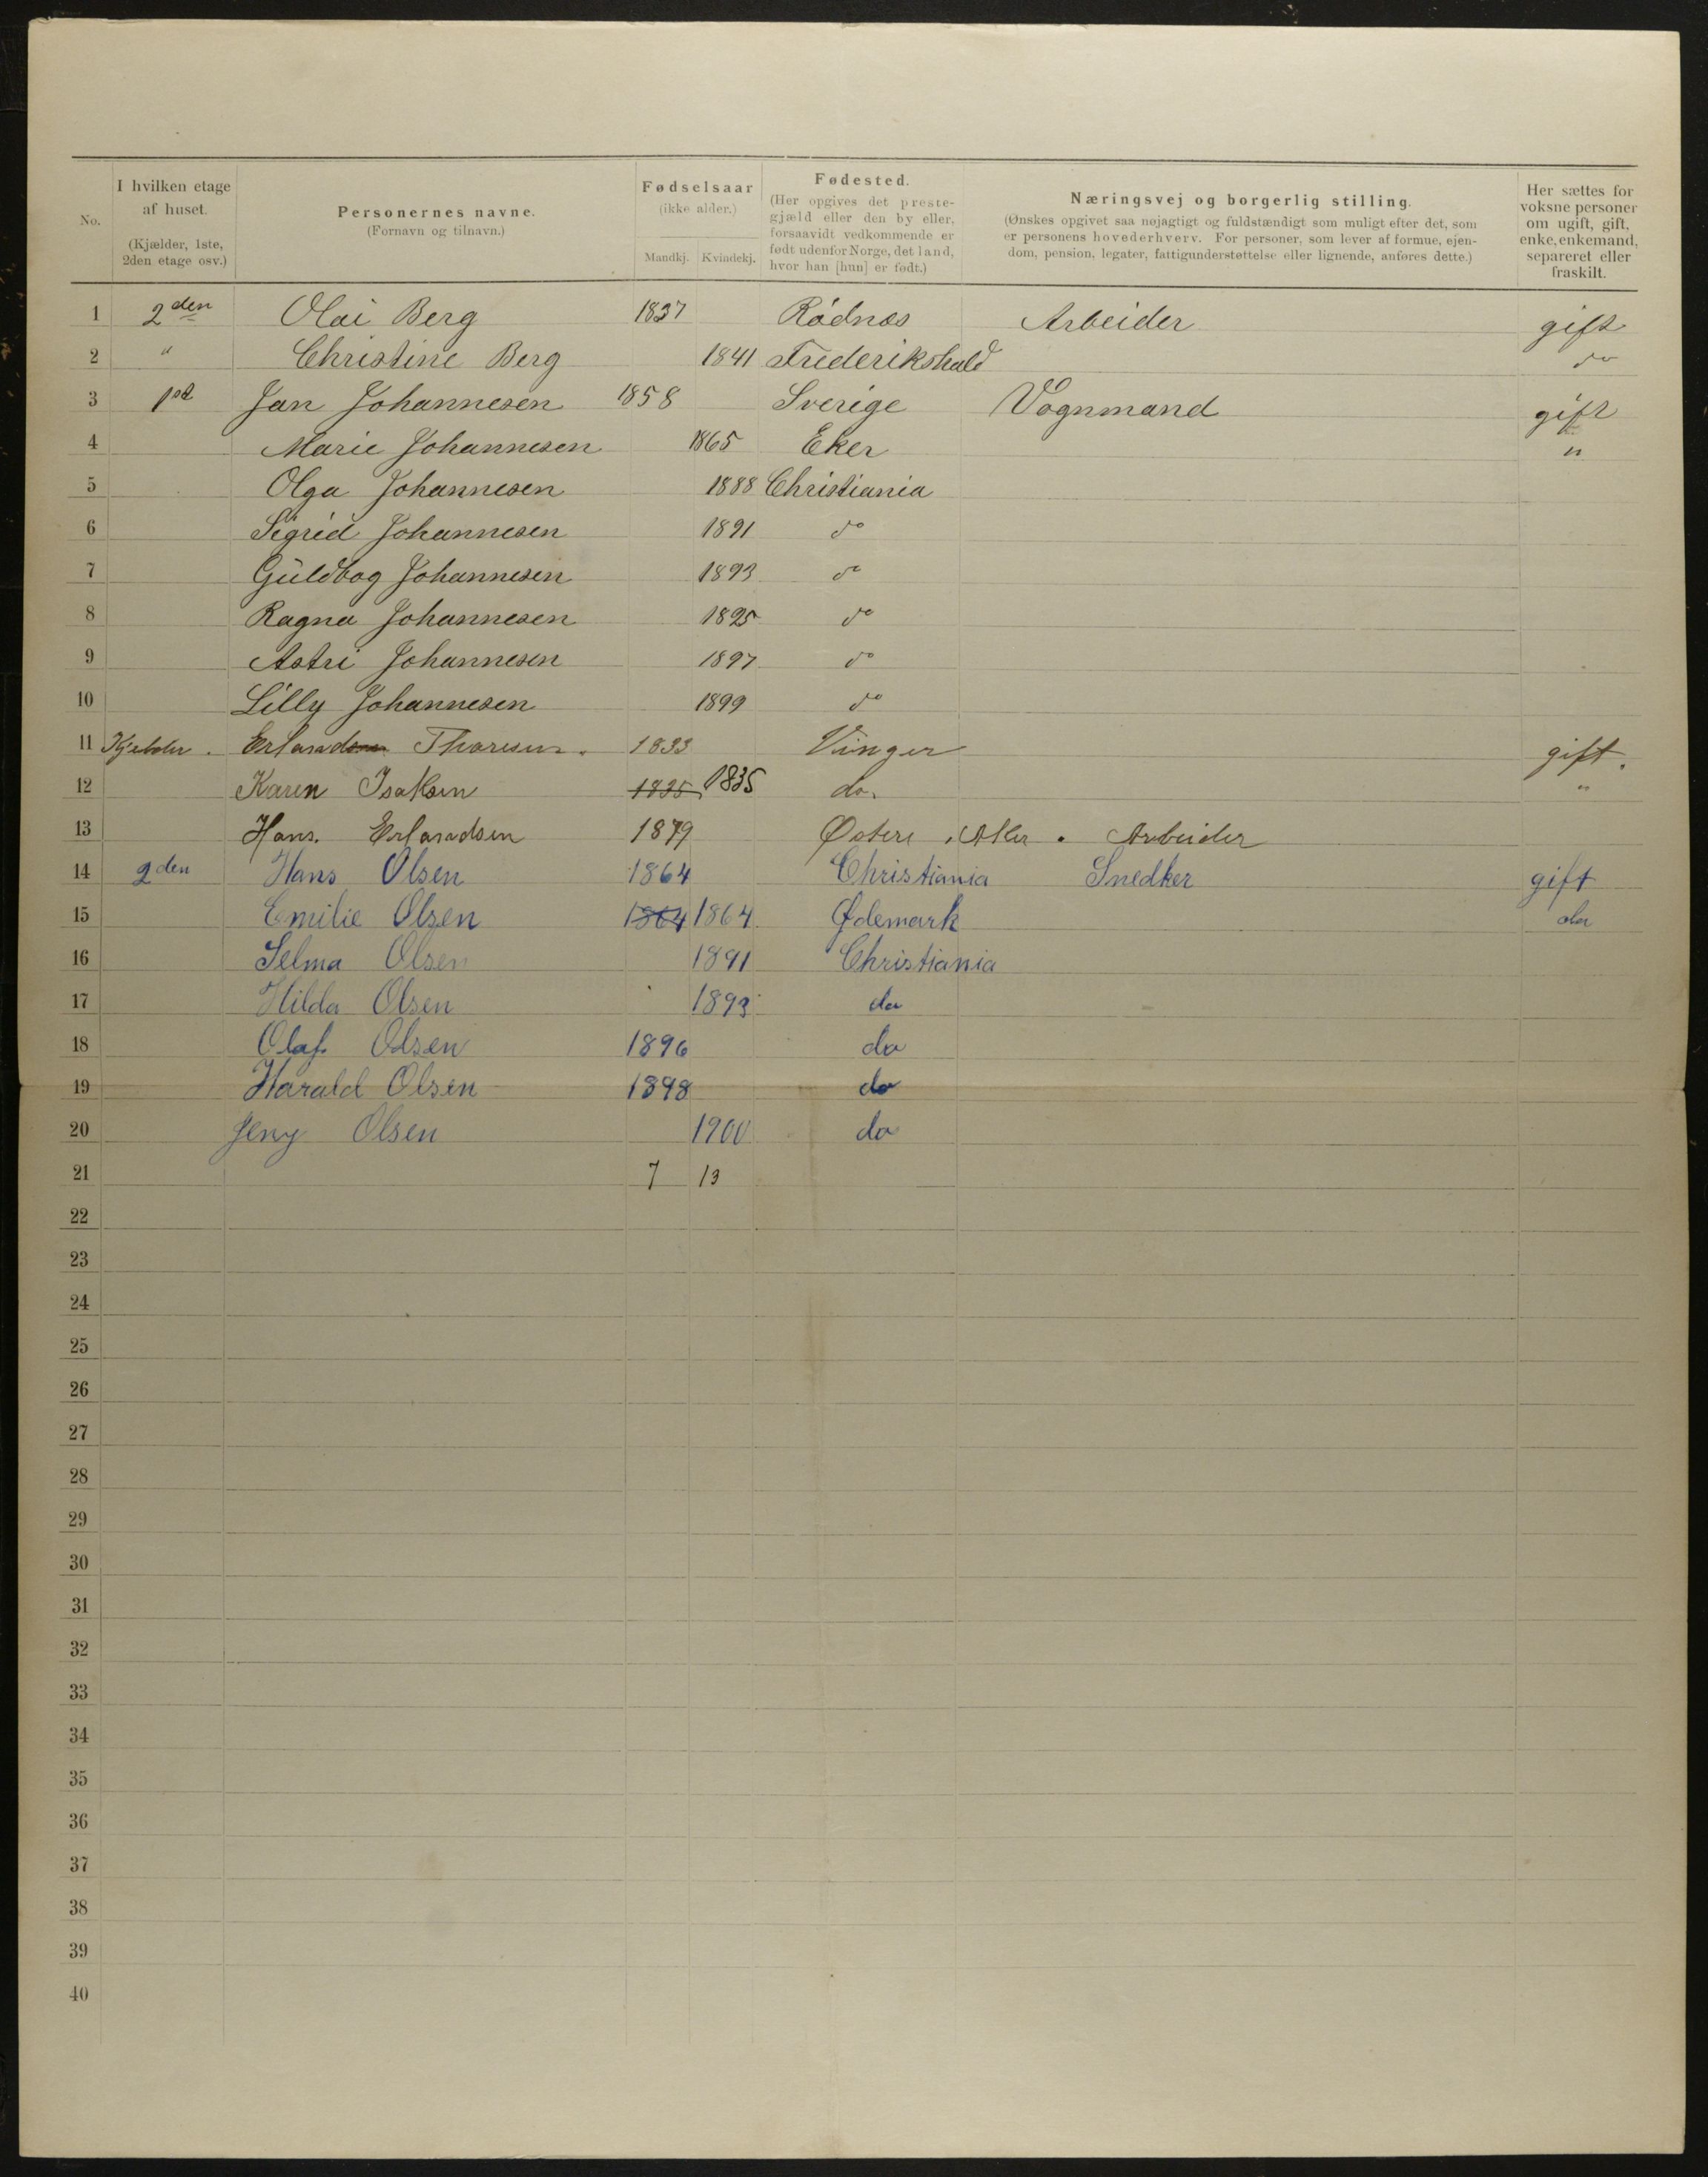 No. I hvilken etage af huset. (Kjælder, 1ste, 2den etage osv.) Personernes navne. (Fornavn og tilnavn.) Fødselsaar (ikke alder.) Mandkj. Kvindekj. Fødested. (Her opgives det prestegjæld eller den by eller, forsaavidt vedkommende er født udenfor Norge, det land, hvor han [hun] er født.) Næringsvej og borgerlig stilling. (Ønskes opgivet saa nøjagtigt og fuldstændigt som muligt efter det, som er personens hovederhverv. For personer, som lever af formue, ejendom, pension, legater, fattigunderstøttelse eller lignende, anføres dette.) Her sættes for voksne personer om ugift, gift, enke, enkemand, separeret eller fraskilt.
1 2den Olai Berg 1837 Rødnæs Arbeider gift
2 " Christine Berg 1841 Frederikshald do
3 1st Jan Johannesen 1858 Sverige Vognmand gift
4 Marie Johannesen 1865 Eker "
5 Olga Johannesen 1888 Christiania
6 Sigrid Johannesen 1891 do
7 Guldbog Johannesen 1893 do
8 Ragna Johannesen 1895 do
9 Astri Johannesen 1897 do
10 Lilly Johannesen 1899 do
11 Kjelder. Erlandsen Thoresen. 1833 Vinger gift.
12 Karen Isaksen 1835 1835 do. "
13 Hans. Erlandsen 1879 Østere. Aker. Arbeider
14 2den Hans Olsen 1864 Christiania Snedker gift
15 Emilie Olsen 1864 1864 Ødemark do
16 Selma Olsen 1891 Christiania
17 Hilda Olsen 1893 do
18 Olaf Olsen 1896 do
19 Harald Olsen 1898 do
20 Jeny Olsen 1900 do
21 7 13
22
23
24
25
26
27
28
29
30
31
32
33
34
35
36
37
38
39
40